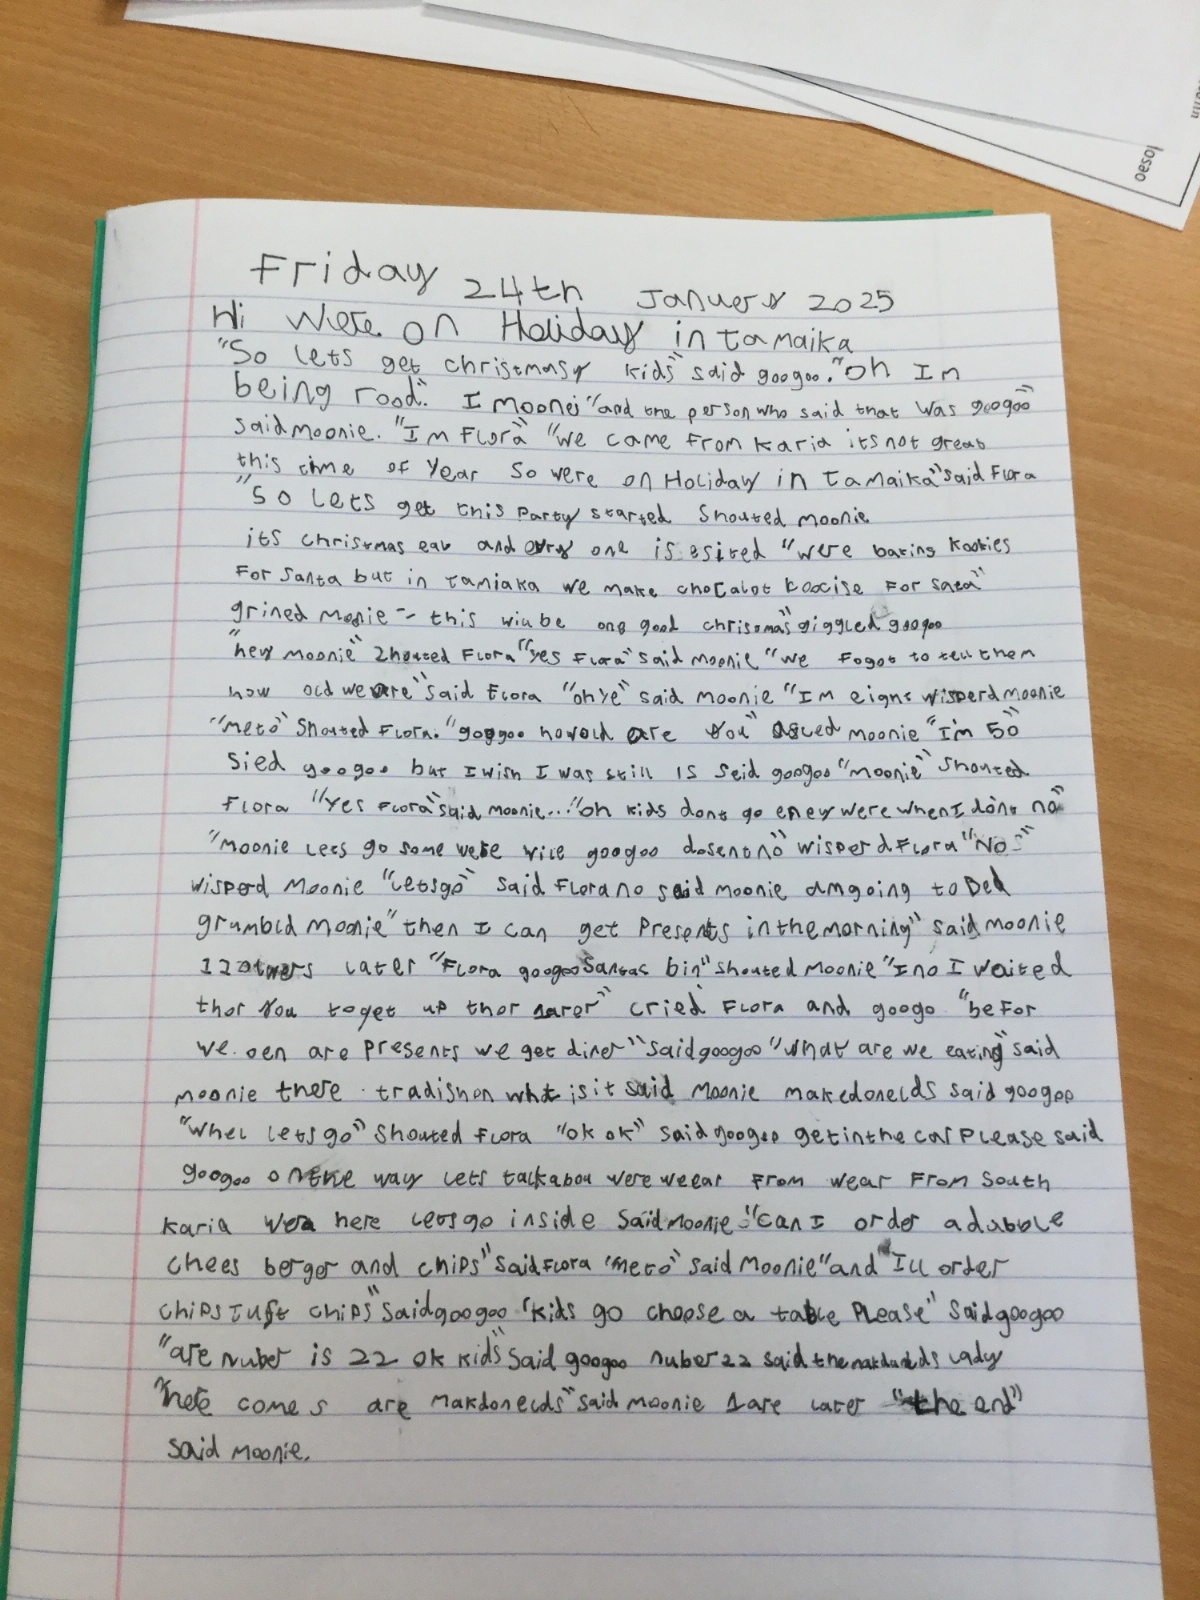 Friday 24th January 2025
Hi were on Holiday in tamaika
"So lets get christmasy kids" said googoo. "oh Im
being rood." I moonei "and the person who said that was googoo"
said moonie. "Im Flora" "we came from Karia its not great
this time of Year So were on Holiday in tamaika" said Flora
"So lets get this Party started Shouted moonie
its christmas eav and evry one is esited "were baking kookies
For Santa but in tamiaka we make chocalot koocise For
grined moonie - this wiu be one good chrismas" giggled googoo
"hey moonie" Shouted Flora "yes Flora" said moonie "we Fogot to tell them
how old we are" said Flora "oh ye" said moonie "Im eight wisperd moonie
"meto" Shouted Flora. "googoo howold are you" asced moonie "Im 50"
sied googoo but I wish I was still 15 seid googoo "moonie" shouted
Flora "Yes Flora" said moonie... "oh kids dont go eney were when I dont no"
"moonie lets go some were wile googoo dosent no" wisperd Flora "No"
wisperd moonie "letsgo" said Flora no said moonie am going to Bed
grumbld moonie "then I can get Presents in the morning" said moonie
12 later "Flora googoo Santas bin" shouted moonie "I no I waited
thor you to get up thor" cried Flora and googo "be For
we oen are presents we get diner" said googoo "what are we eating" said
moonie there tradishon what is it said moonie makedonelds said googoo
"whel lets go" shouted Flora "ok ok" said googoo get in the car Please said
googoo on the way lets talk abou were weear From wear From South
Karia were here lets go inside said moonie "can I order a dubble
chees berger and chips" said Flora "meto" said moonie "and Ill order
chips Juft chips" said googoo "kids go choose a table Please" said googoo
"are nuber is 22 ok kids" said googoo nuber 22 said the lady
"here comes are makdonelds" said moonie 1 are later "the end"
said moonie.